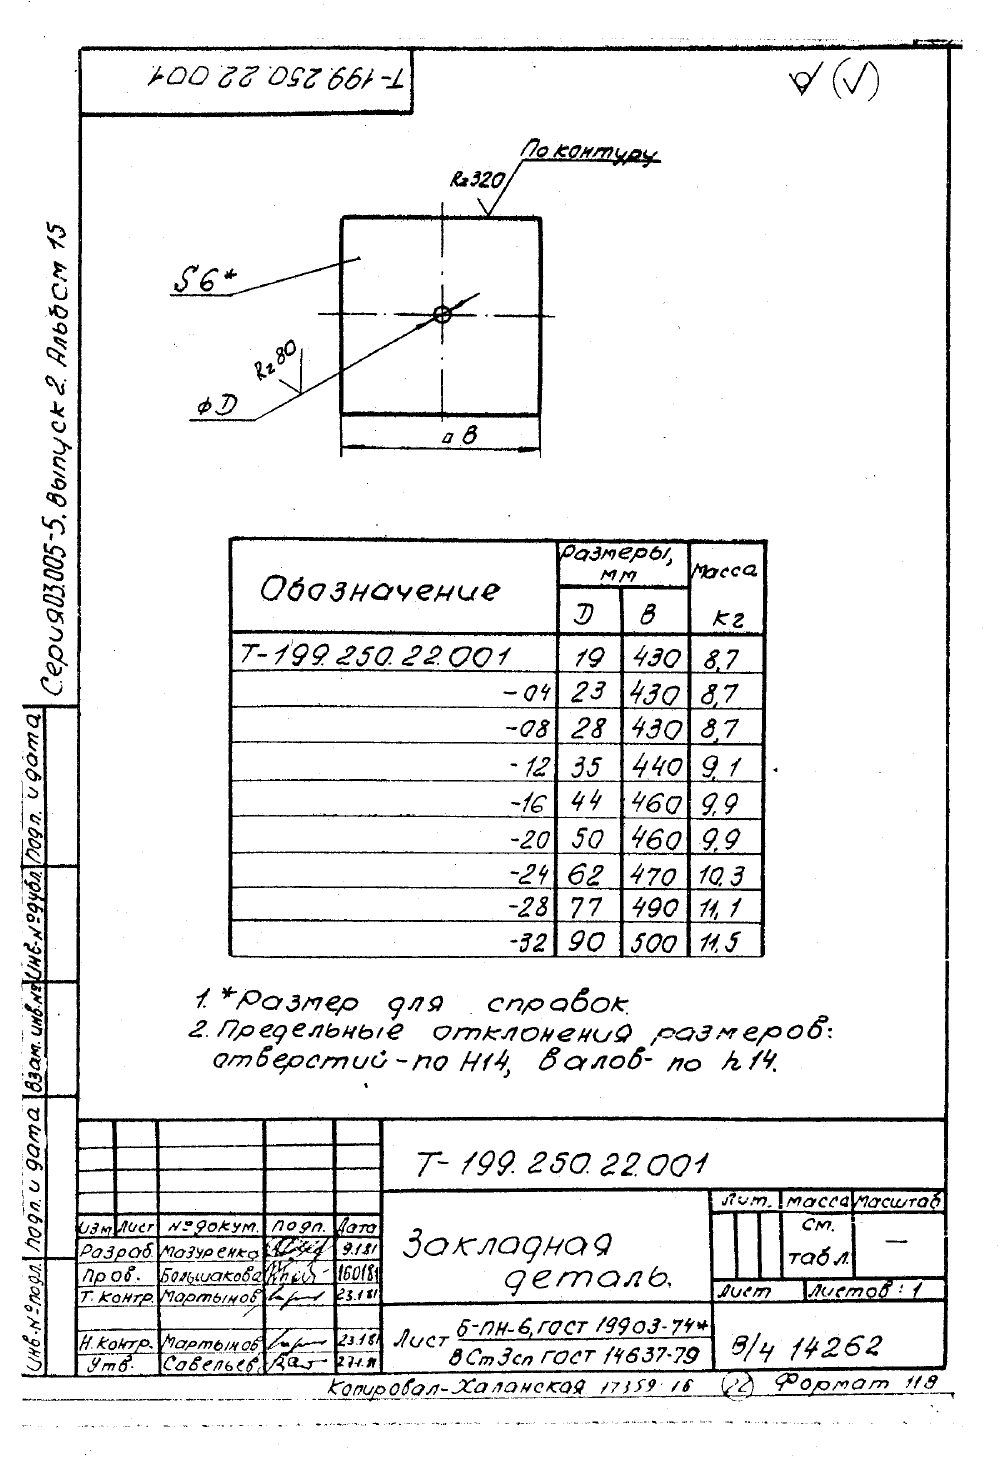 Т-199.250.22.001
(√)
По контуру
Rz320
S6*
Rz80
⌀D
□ В
Серия 03.005-5. Выпуск 2. Альбом 15
Обозначение
Размеры, мм
Масса кг
D
В
Т-199.250.22.001 19 430 8,7
-04 23 430 8,7
-08 28 430 8,7
-12 35 440 9,1
-16 44 460 9,9
-20 50 460 9,9
-24 62 470 10,3
-28 77 490 11,1
-32 90 500 11,5
1. *Размер для справок.
2. Предельные отклонения размеров:
отверстий - по Н14, валов - по h14.
Инв.№ подл.
Подп. и дата
Взам. инв.№
Инв.№ дубл.
Подп. и дата
Т-199.250.22.001
Изм Лист № докум. Подп. Дата
Разраб. Мазуренко 9.1.81
Пров. Большакова 16.01.81
Т. контр. Мартынов 23.1.81
Н. контр. Мартынов 23.1.81
Утв. Савельев
Закладная
деталь.
Лит. Масса Масштаб
см.
табл.
—
Лист
Листов: 1
Лист
Б-ПН-6, ГОСТ 19903-74*
ВСт3сп ГОСТ 14637-79
В/ч 14262
Копировал - Халанская 17359 16
22
Формат 11В